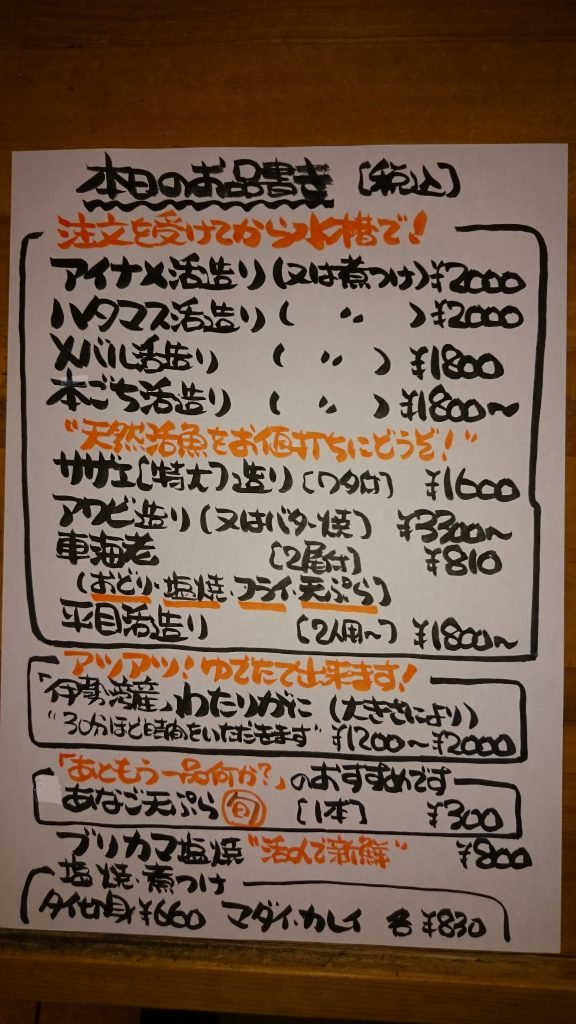 本日のお品書き [税込]
注文を受けてから水槽で!
アイナメ活造り(又は煮つけ)¥2000
ハタマス活造り( 〃 )¥2000
メバル活造り( 〃 )¥1800
本ごち活造り( 〃 )¥1800〜
"天然活魚をお値打ちにどうぞ!"
サザエ[特大]造り[ワタ付] ¥1600
アワビ造り(又はバター焼) ¥3300〜
車海老 [2尾付] ¥810
(おどり・塩焼・フライ・天ぷら)
平目活造り [2人用〜] ¥1800〜
アツアツ!ゆでたて出来ます!
「伊勢湾産」わたりがに(大きさにより)
"30分ほど時間をいただきます" ¥1200〜¥2000
「あともう一品何か?」のおすすめです
あなご天ぷら 旬 [1本] ¥300
ブリカマ塩焼"活〆で新鮮" ¥800
塩焼・煮つけ
タイ切身¥660 マダイ・カレイ 各¥830